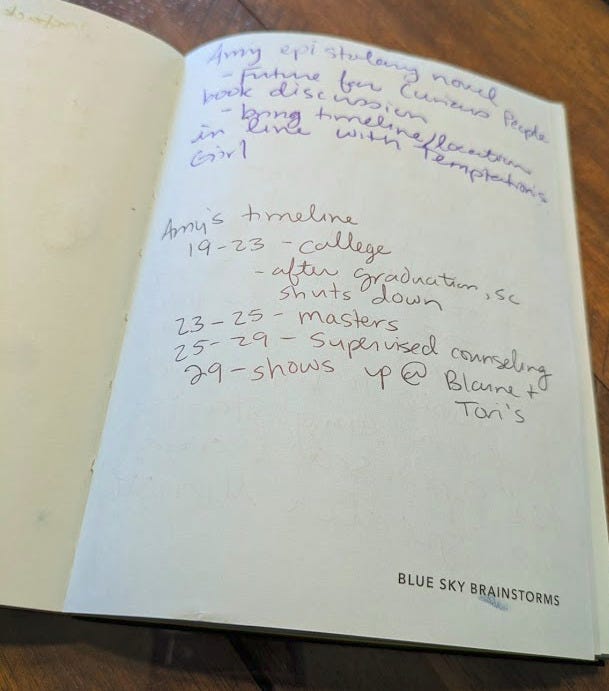 Amy epistolary novel
- Future for Curious People
book discussion
- bring timeline/locations
in line with Temptation's
Girl
Amy's timeline
19-23 - college
- after graduation, sc
shuts down
23-25 - masters
25-29 - Supervised counseling
29 - shows up @ Blaine +
Tori's
BLUE SKY BRAINSTORMS